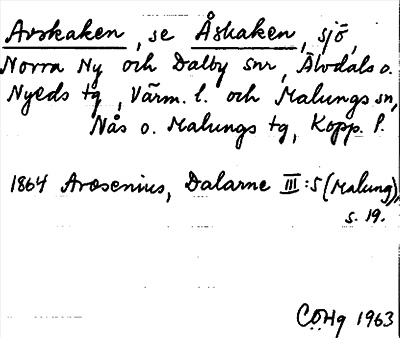 Avskaken, se Åskaken, sjö,
Norra Ny och Dalby snr, Älvdals o.
Nyeds tg, Värm. l. och Malungs sn,
Nås o. Malungs tg, Kopp. l.
1864 Arosenius, Dalarne III:5 (Malung),
s. 19.
COHg 1963